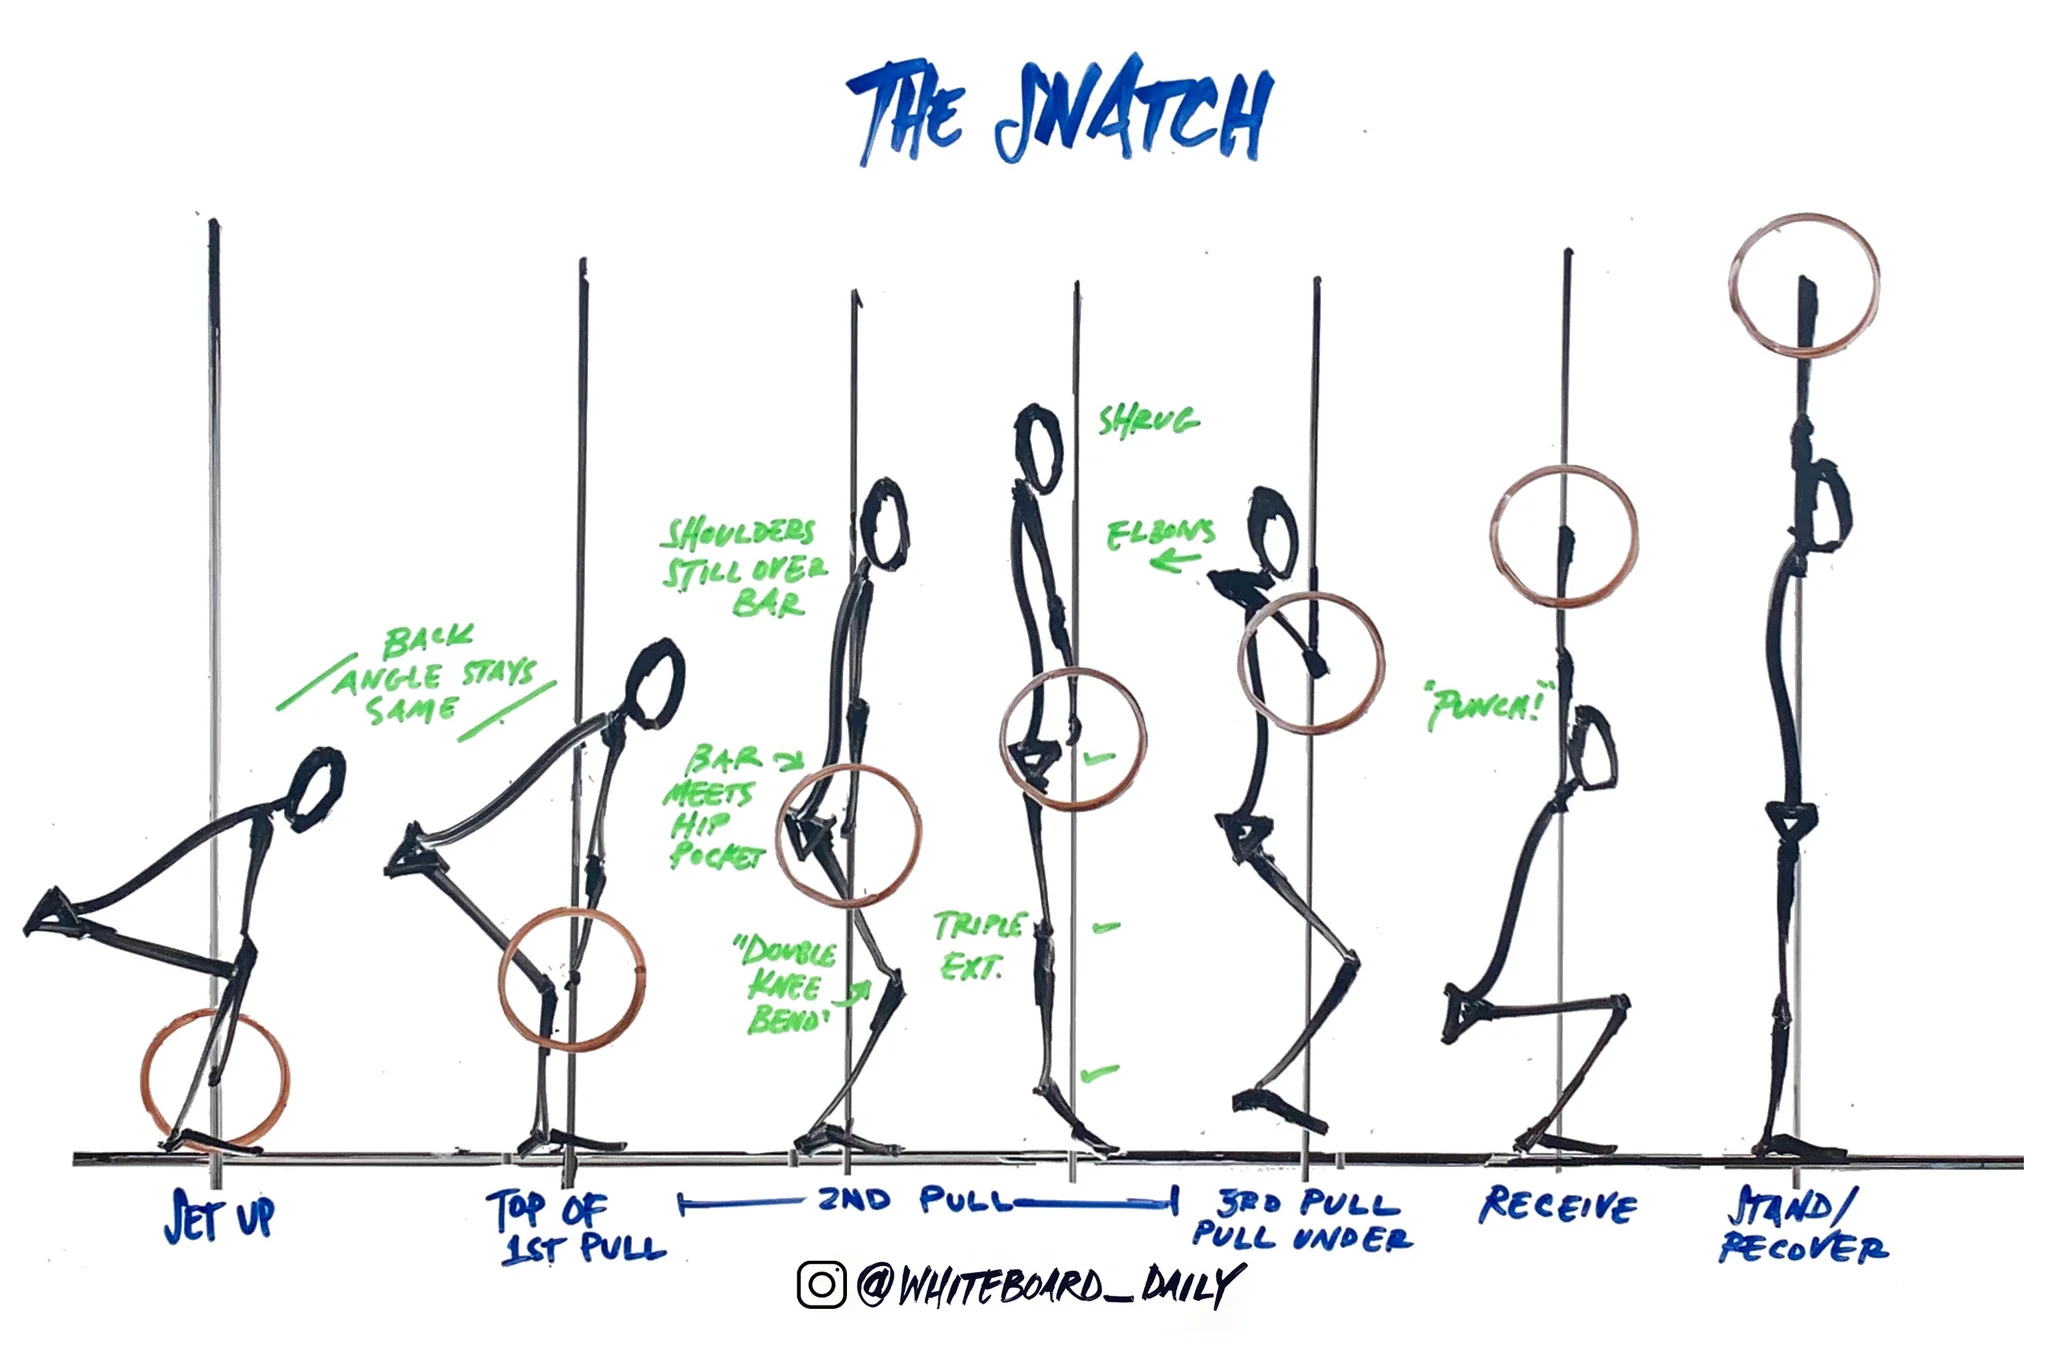 THE SNATCH
BACK
ANGLE STAYS
SAME
SHOULDERS
STILL OVER
BAR
BAR
MEETS
HIP
POCKET
"DOUBLE
KNEE
BEND"
SHRUG
TRIPLE
EXT.
ELBOWS
"PUNCH!"
SET UP
TOP OF
1ST PULL
2ND PULL
3RD PULL
PULL UNDER
RECEIVE
STAND/
RECOVER
@WHITEBOARD_DAILY